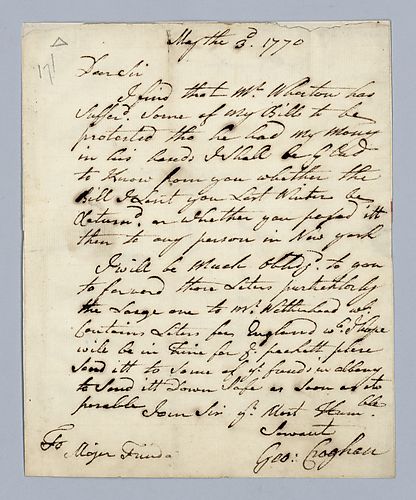 May the 3d. 1770
171
Dear Sir
I find that Mr. Wharton has
Sufferd. Some of my Bills to be
protested tho he had my Money
in his hands I Shall be Glad
to Know from you whether the
Bill I Sent you Last Winter be
Returnd. or whether you payed itt
then to any person in New york
I will be Much obligd. to you
to forward those Leters pertickler by
the Large one to Mr. Wetherhead wh.
Contains Leters for England wh. I hope
will be in Time for ye. packett plese
Send itt to Some of yr. frends in albany
to Send itt Down Safe as Soon as
posable I am Sir yr. Most Humble
Servant
Geo: Croghan
To
Mojer Funda